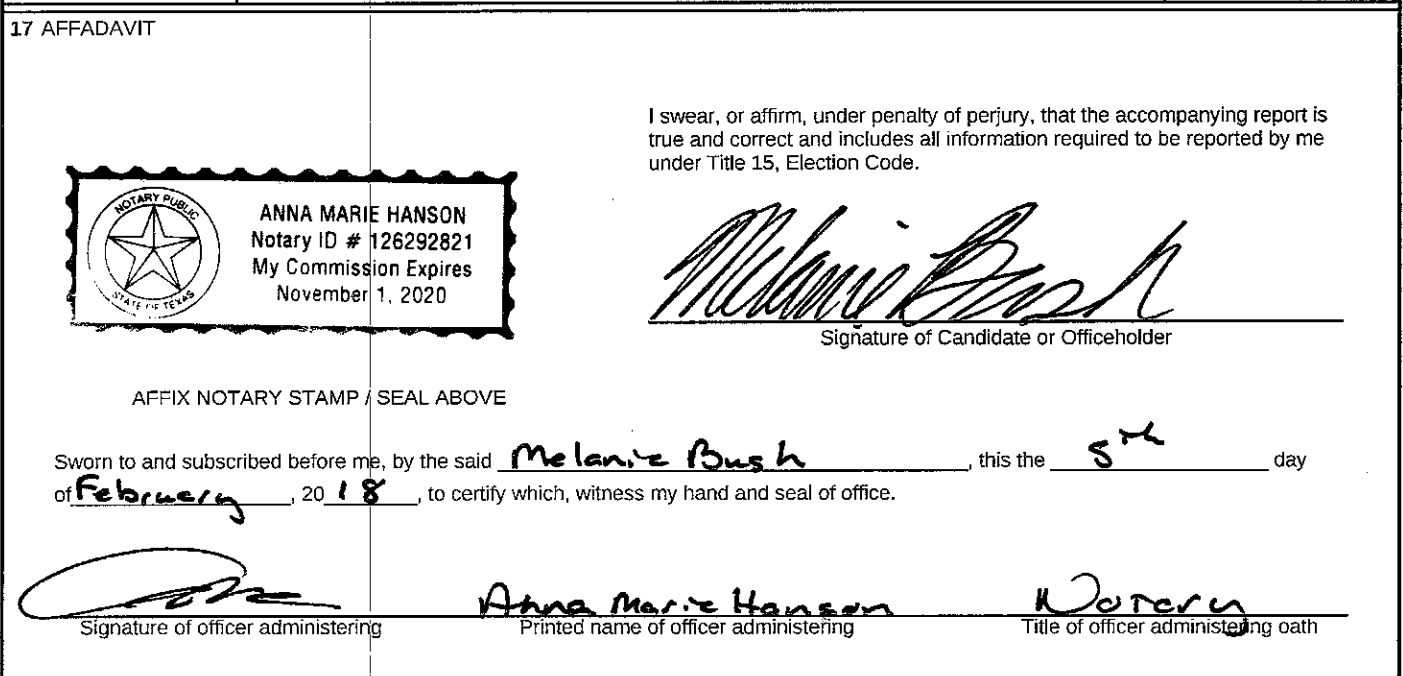 17 AFFADAVIT
I swear, or affirm, under penalty of perjury, that the accompanying report is
true and correct and includes all information required to be reported by me
under Title 15, Election Code.
NOTARY PUBLIC
STATE OF TEXAS
ANNA MARIE HANSON
Notary ID # 126292821
My Commission Expires
November 1, 2020
Melanie Bush
Signature of Candidate or Officeholder
AFFIX NOTARY STAMP / SEAL ABOVE
Sworn to and subscribed before me, by the said Melanie Bush, this the 5th day
of February, 20 18, to certify which, witness my hand and seal of office.
Anna Marie Hanson Notary
Signature of officer administering Printed name of officer administering Title of officer administering oath